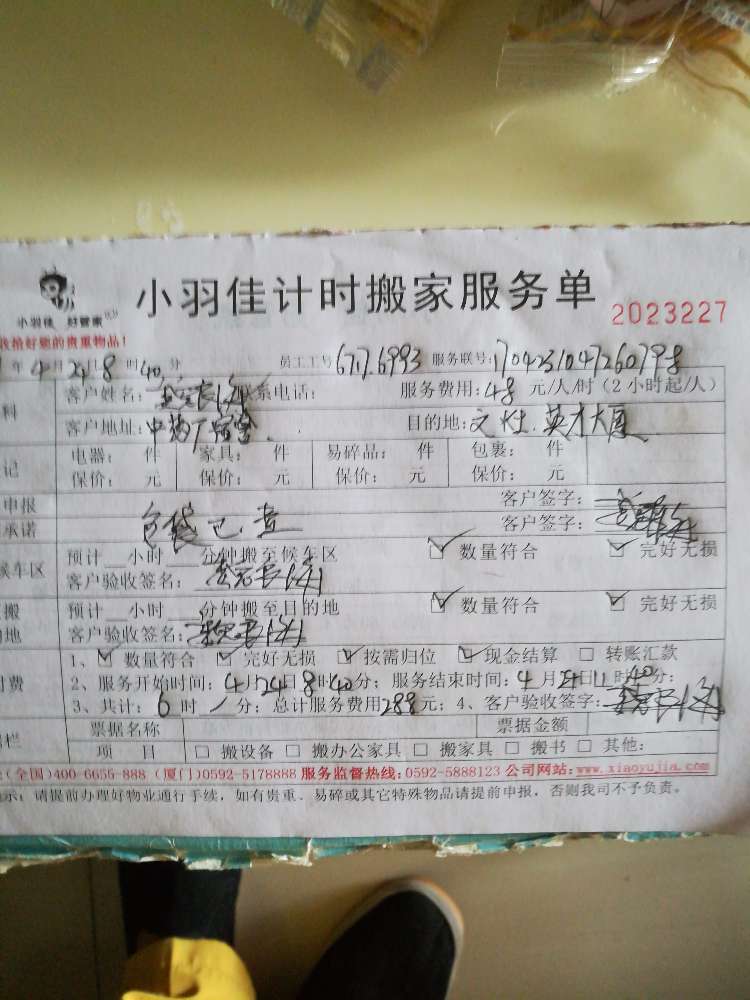 小羽佳计时搬家服务单
2023227
小羽佳 好管家
收拾好您的贵重物品!
年 4 月 24 日 8 时 40 分 员工工号 6717.6993 服务联号: 170423104726079
客户姓名: 联系电话: 服务费用: 48 元/人/时 (2小时起/人)
客户地址: 中药厂宿舍 目的地: 文灶.英才大厦
电器: 件 家具: 件 易碎品: 件 包裹: 件
保价: 元 保价: 元 保价: 元 保价: 元
申报 客户签字:
承诺 包袋已查 客户签字:
预计 小时 分钟搬至候车区 数量符合 完好无损
候车区 客户验收签名:
搬 预计 小时 分钟搬至目的地 数量符合 完好无损
地 客户验收签名:
1、 数量符合 完好无损 按需归位 现金结算 转账汇款
付费 2、服务开始时间: 4 月 24 日 8 时 40 分; 服务结束时间: 4 月 24 日 11 时 40 分;
3、共计: 6 时 / 分; 总计服务费用 288 元; 4、客户验收签字:
栏 票据名称 票据金额
项 目 搬设备 搬办公家具 搬家具 搬书 其他:
(全国)400-6655-888 (厦门)0592-5178888 服务监督热线:0592-5888123 公司网站:www.xiaoyujia.com
示: 请提前办理好物业通行手续, 如有贵重、易碎或其它特殊物品请提前申报, 否则我司不予负责。